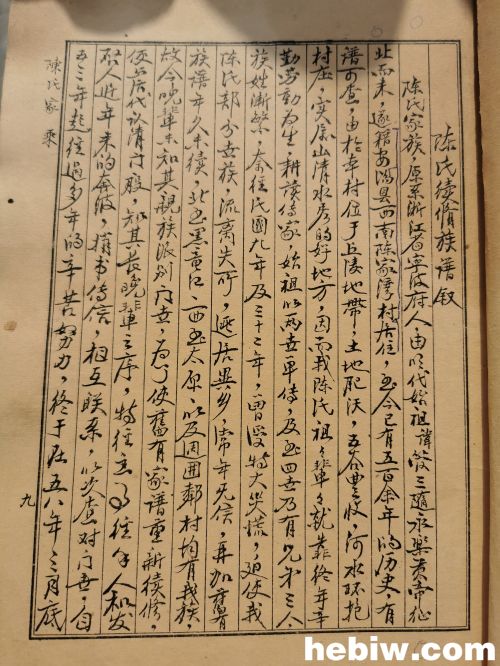 陈氏续脩族谱叙
陈氏家族，原系浙江省宁波府人，由明代始祖讳 三随永乐黄帝征
北而来，遂籍安鴻县西南陈家湾村居住，至今已有五百余年的历史，有
谱可查，由於本村位于丘陵地带，土地肥沃，五谷丰收，河水环抱
村庄，实属山清水秀的好地方，因而我陈氏祖祖辈辈就靠终年辛
勤劳动为生，耕读传家，始祖以两世单传，及至四世乃有兄弟三人
族姓渐繁，奈往民國九年及三十二年，曾受特大灾慌，廹使我
陈氏部分世族，流离失所，逃居异乡，常年无信，再加舊有
族谱年久未续，北至黑童江，西至太原，以及週围鄰村均有我族，
故今晚輩未知其親族派别门世，为了使舊有家谱重新续修，
使后代认清门股，知其长晚辈之序，特往 人和发
起人近年来的奔波，捎书传信，相互联系，以步查对门世，自
五三年起经过多年的辛苦努力，终于在五八年三月底
陈氏家乘
九
hebiw.com